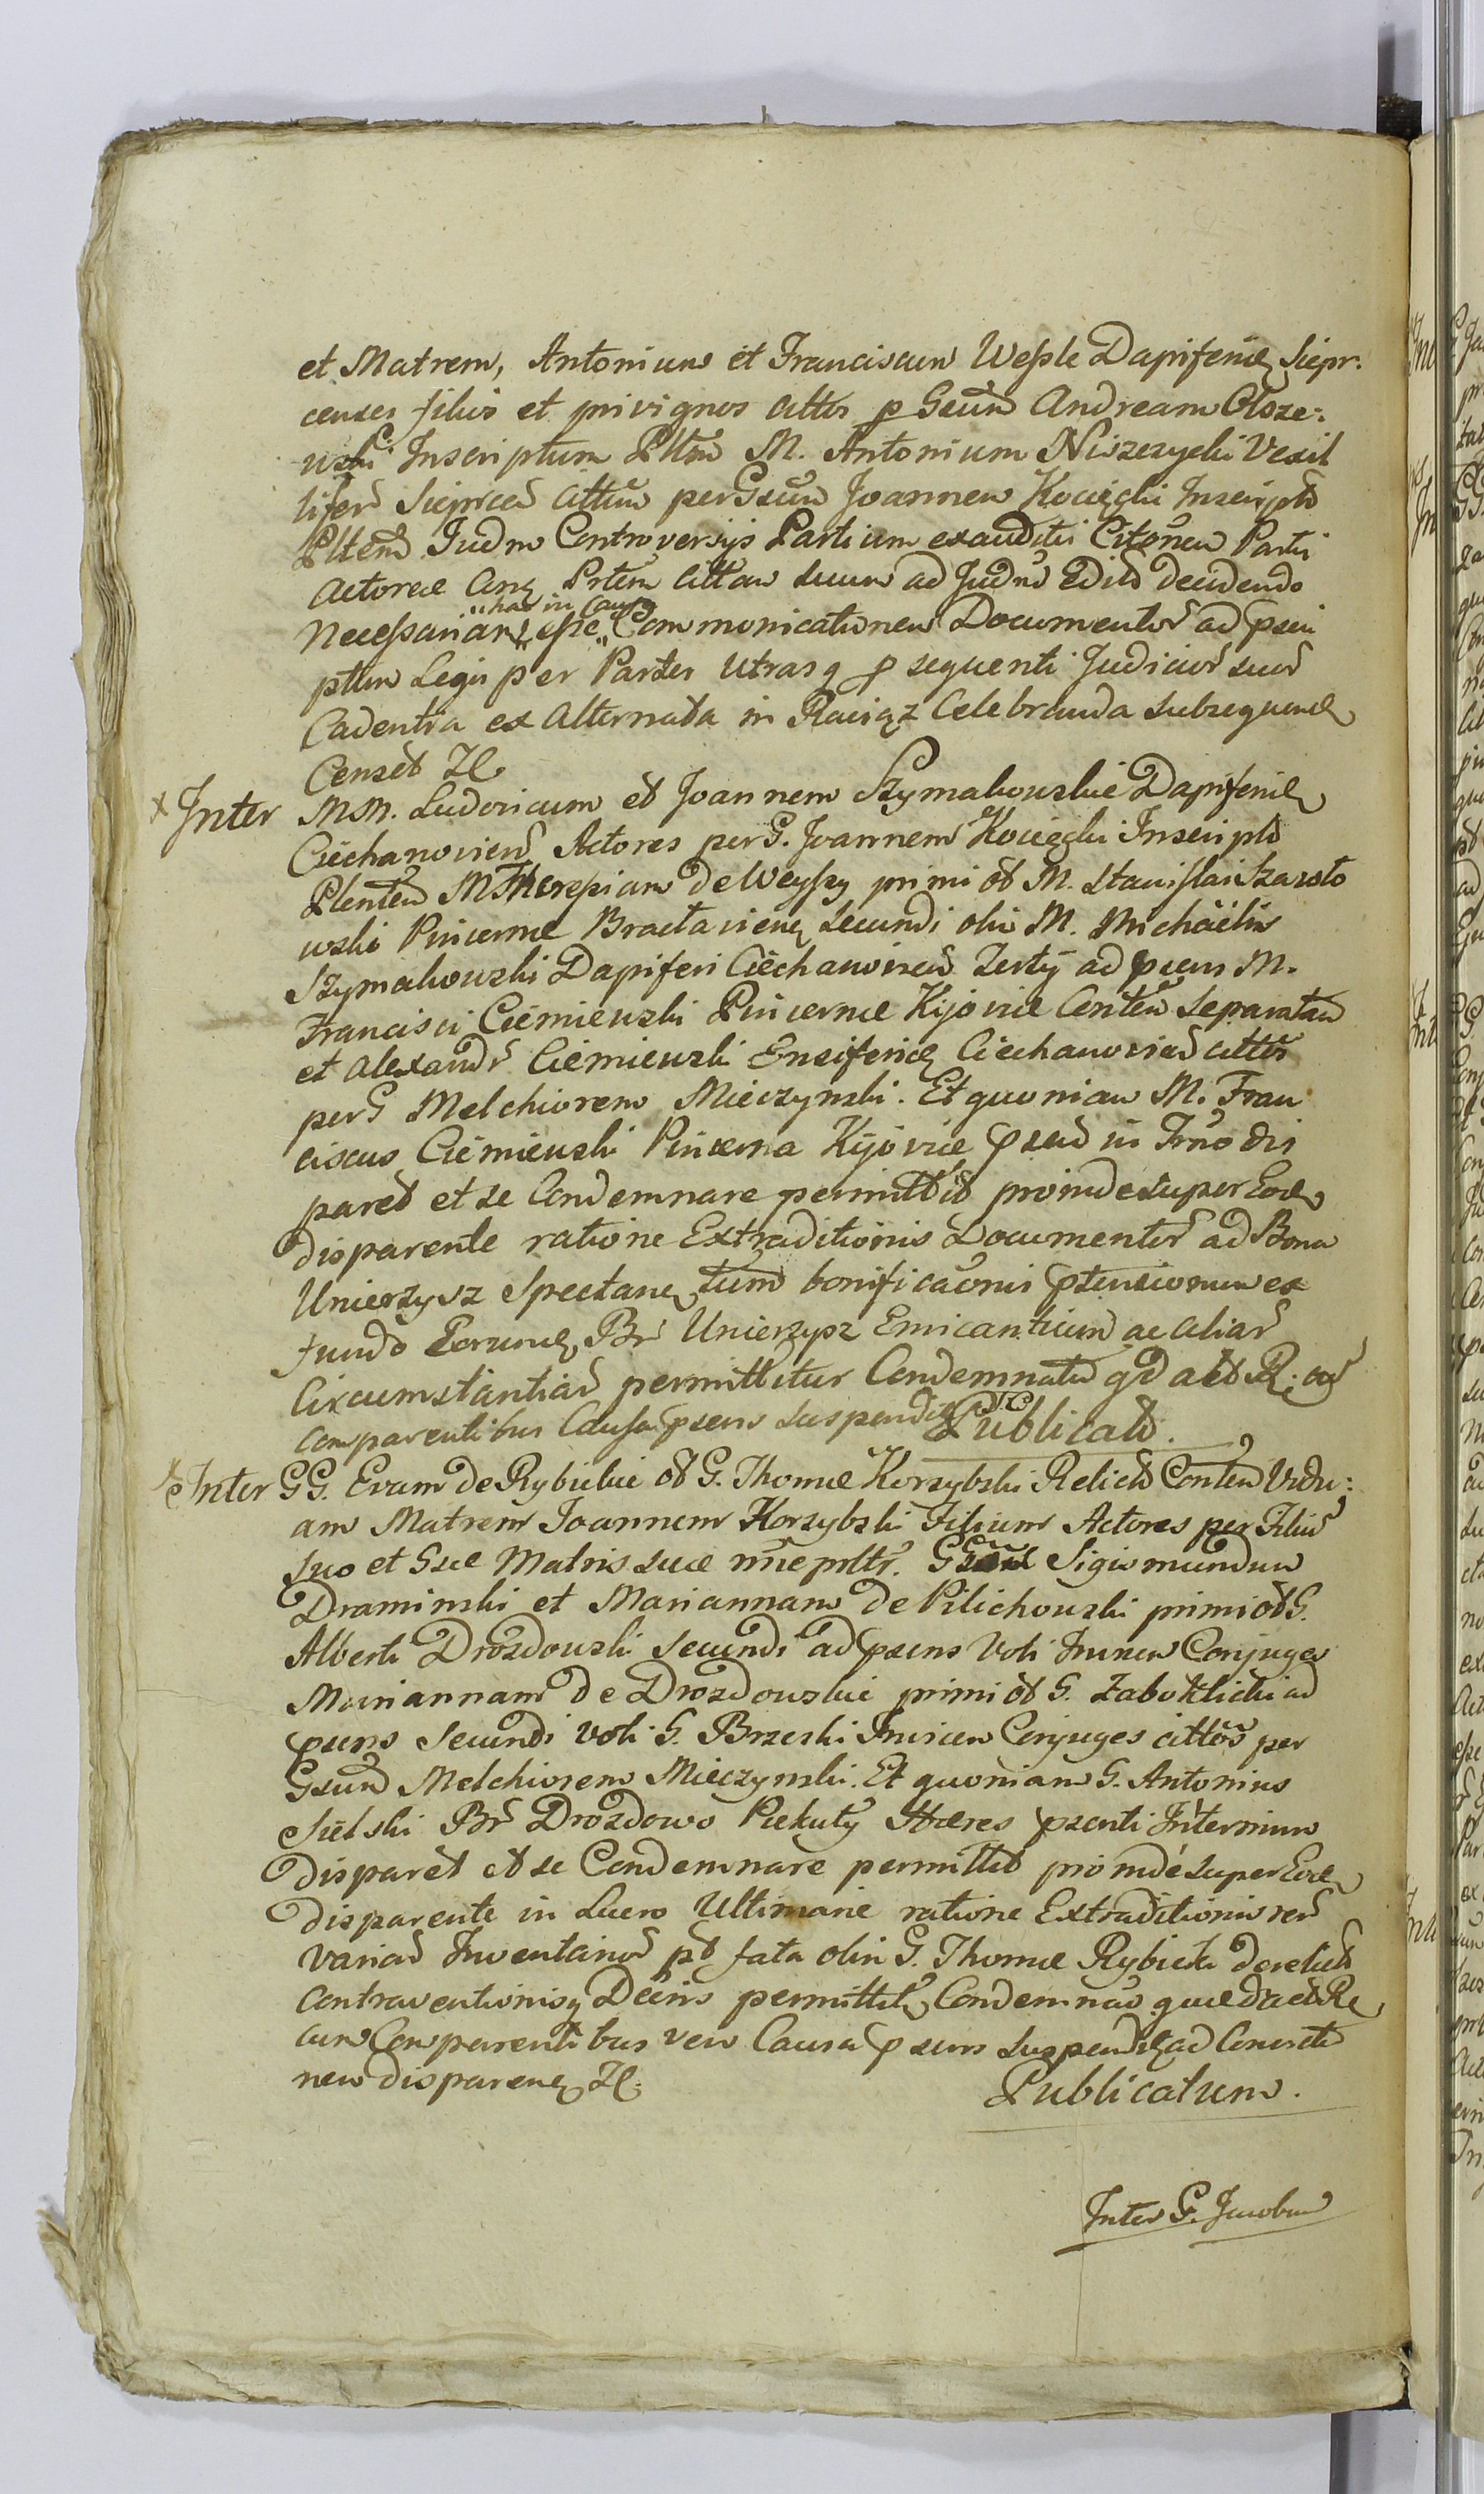 et Matrem, Antonium et Franciscum Wessle Dapiferid Siepr:
censes filios et privignos cittos p Gsum Andream Olsze:
wski Inscriptum Plttem M. Antonium Niszczycki Vexil
liferu Sieprcen Cittum per Gsum Joannem Kocięcki Inscripto
Plttem Judm Controversijs Partium exauditis Citonem Parti
Actoreae Partem Cittam suum ad Judm decidendo
necessariam "hac in Causa" esse Communicationem Documentor ad psci
ptum Legis per Partes utrasq p sequenti Judicior suor
Cadentia ex Alternata in Raciąz Celebranda subsequend
Censet
x Inter MM. Ludovicum et Joannem Szymakowskie Dapiferid
Ciechanovien Actores per G. Joannem Kocięcki Inscripto
Plenten M Theresiam de Weyssy primi ot M. Stanislai Szaroto
wski Pincernae Braclavien secundi olim M. Michaelis
Szymakowski Dapiferi Ciechanovien Tertij ad psens M.
Francisci Ciemiewski Pincernae Kijoviae Conten Separatam
et Alexandr Ciemiewski Ensiferid Ciechanovien cittos
per G Melchiorem Mieczynski. Et quoniam M. Fran
ciscus Ciemiewski Pincerna Kijoviae psend in Trno dis
paret et se Condemnare permittit proinde super Eod
disparente ratione Extraditionis Documentor ad Bona
Unierzysz Spectan tum bonificaonis ptensionum ex
fundo Eorund Br Unierzysz Emicantium ac aliar
Circumstantiar permittitur Condemnatio qd act R; cu
comparentibus Causa psens suspenditur Publicatd.
x Inter GG. Evam de Rybickie ot G. Thomae Korzybski Relict Conten Vidu:
am Matrem Joannem Korzybski Filium Actores per Filiu
suo et Gsae Matris suae nne pltr. Sigismundum
Draminski et Mariannam de Pilichowski primi ot G.
Alberti Drozdowski secundi ad psens Voti Invicem Conjuges
Mariannam de Drozdowskie primi ot G. Zaboklicki ad
psens secundi voti G. Brzeski Invicem Conjuges cittos per
Gsum Melchiorem Mieczynski. Et quoniam G. Antonius
Sielski Br Drozdowo Piekuty Haeres psenti Interminum
disparet et se Condemnare permittit proinde super Eod
disparente in Lucro Ultimarie ratione Extraditionis rer
variar Inventarior pt fata olim G. Thomae Rybicki derelict
contraventionisq Decis permittitr Condemnao quae d act Re
cum Comparentibus vero Causa psens suspenditr ad Concreti
nem disparen
Publicatum.
Inter G. Jacobum